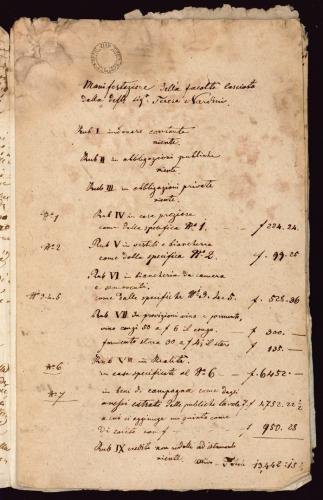 Manifestazione della facoltà lasciata
dalla def.ta Sig.ra Teresa Nardini.
Rub I in danaro contante
niente.
Rub II in obbligazioni publiche
niente.
Rub III in obbligazioni private
niente.
N° 1 Rub IV in cose preziose
come dalla specifica N° 1. f 224.24.
N° 2 Rub V in vestiti e biancheria
come dalla specifica N° 2. f. 99.25
Rub VI in biancheria da camera
e
N° 3.4.5 come dalle specifiche N° 3. 4 e 5. f. 528.36
Rub VII in provigioni vino e formento,
vino conzi 50 a f 6 il congo. f 300.—
formento stara 30 a f 4½ il staro f 135.—
Rub VIII in Realità.
N° 6 in case specificate al N° 6. f. 6452.—
N° 7 in beni di campagna come dagli
annessi estratti delle publiche tavole 7. f 4,752. 22 ½
a cui si aggiunge un quinto come
di f 950. 28
Rub IX crediti
niente.
13,442.15 ½